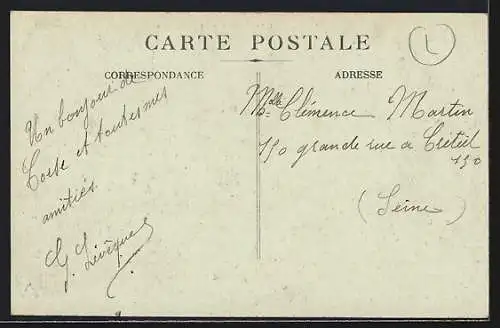 CARTE POSTALE
L
CORRESPONDANCE
ADRESSE
Un bonjour de
Corse et toutes mes
amitiés
G. Lévêque
Mdlle Clémence Martin
150 grande rue a Créteil
150
(Seine)